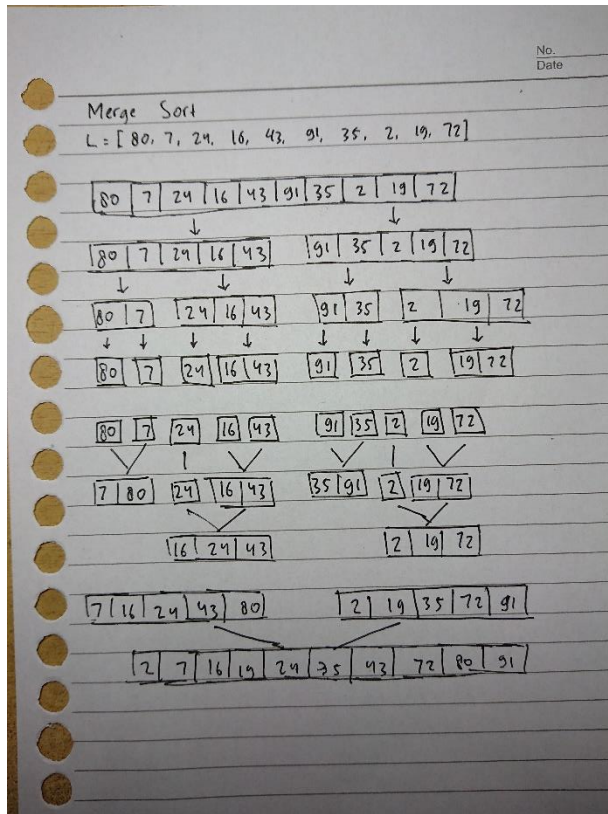 No.
Date
Merge Sort
L = [ 80, 7, 24, 16, 43, 91, 35, 2, 19, 72]
80 7 24 16 43 91 35 2 19 72
80 7 24 16 43 91 35 2 19 72
80 7 24 16 43 91 35 2 19 72
80 7 24 16 43 91 35 2 19 72
80 7 24 16 43 91 35 2 19 72
7 80 24 16 43 35 91 2 19 72
16 24 43 2 19 72
7 16 24 43 80 2 19 35 72 91
2 7 16 19 24 35 43 72 80 91